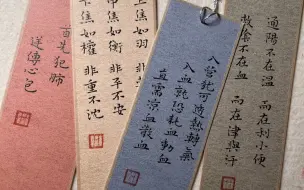 通陽不在溫 而在利小便
救陰不在血 而在津與汗
入營犹可透熱轉氣
入血就恐耗血動血
直需涼血散血
上焦如羽 非
中焦如衡 非平不安
下焦如權 非重不沈
首先犯肺
逆傳心包